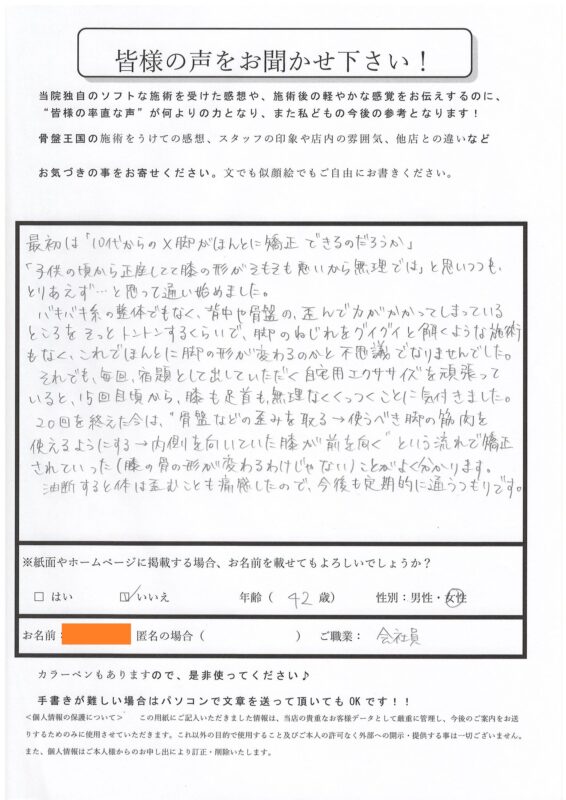 皆様の声をお聞かせ下さい！
当院独自のソフトな施術を受けた感想や、施術後の軽やかな感覚をお伝えするのに、
“皆様の率直な声”が何よりの力となり、また私どもの今後の参考となります！
骨盤王国の施術をうけての感想、スタッフの印象や店内の雰囲気、他店との違いなど
お気づきの事をお寄せください。文でも似顔絵でもご自由にお書きください。
最初は「10代からのX脚がほんとに矯正できるのだろうか」
「子供の頃から正座してて膝の形がそもそも悪いから無理では」と思いつつも、
とりあえず…と思って通い始めました。
バキバキ系の整体でもなく、背中や骨盤の、歪んで力がかかってしまっている
ところをそっとトントンするくらいで、脚のねじれをグイグイと解くような施術
もなく、これでほんとに脚の形が変わるのかと不思議でなりませんでした。
それでも、毎回、宿題として出していただく自宅用エクササイズを頑張って
いると、15回目頃から、膝も足首も、無理なくくっつくことに気付きました。
20回を終えた今は、“骨盤などの歪みを取る→使うべき脚の筋肉を
使えるようにする→内側を向いていた膝が前を向く”という流れで矯正
されていった(膝の骨の形が変わるわけじゃない)ことがよく分かります。
油断すると体は歪むことも痛感したので、今後も定期的に通うつもりです。
※紙面やホームページに掲載する場合、お名前を載せてもよろしいでしょうか？
□ はい ☑ いいえ 年齢（ 42 歳） 性別：男性・女性
お名前： 匿名の場合（ ） ご職業： 会社員
カラーペンもありますので、是非使ってください♪
手書きが難しい場合はパソコンで文章を送って頂いても OK です！！
＜個人情報の保護について＞ この用紙にご記入いただきました情報は、当店の貴重なお客様データとして厳重に管理し、今後のご案内をお送
りするためのみに使用させていただきます。これ以外の目的で使用すること及びご本人の許可なく外部への開示・提供する事は一切ございません。
また、個人情報はご本人様からのお申し出により訂正・削除いたします。